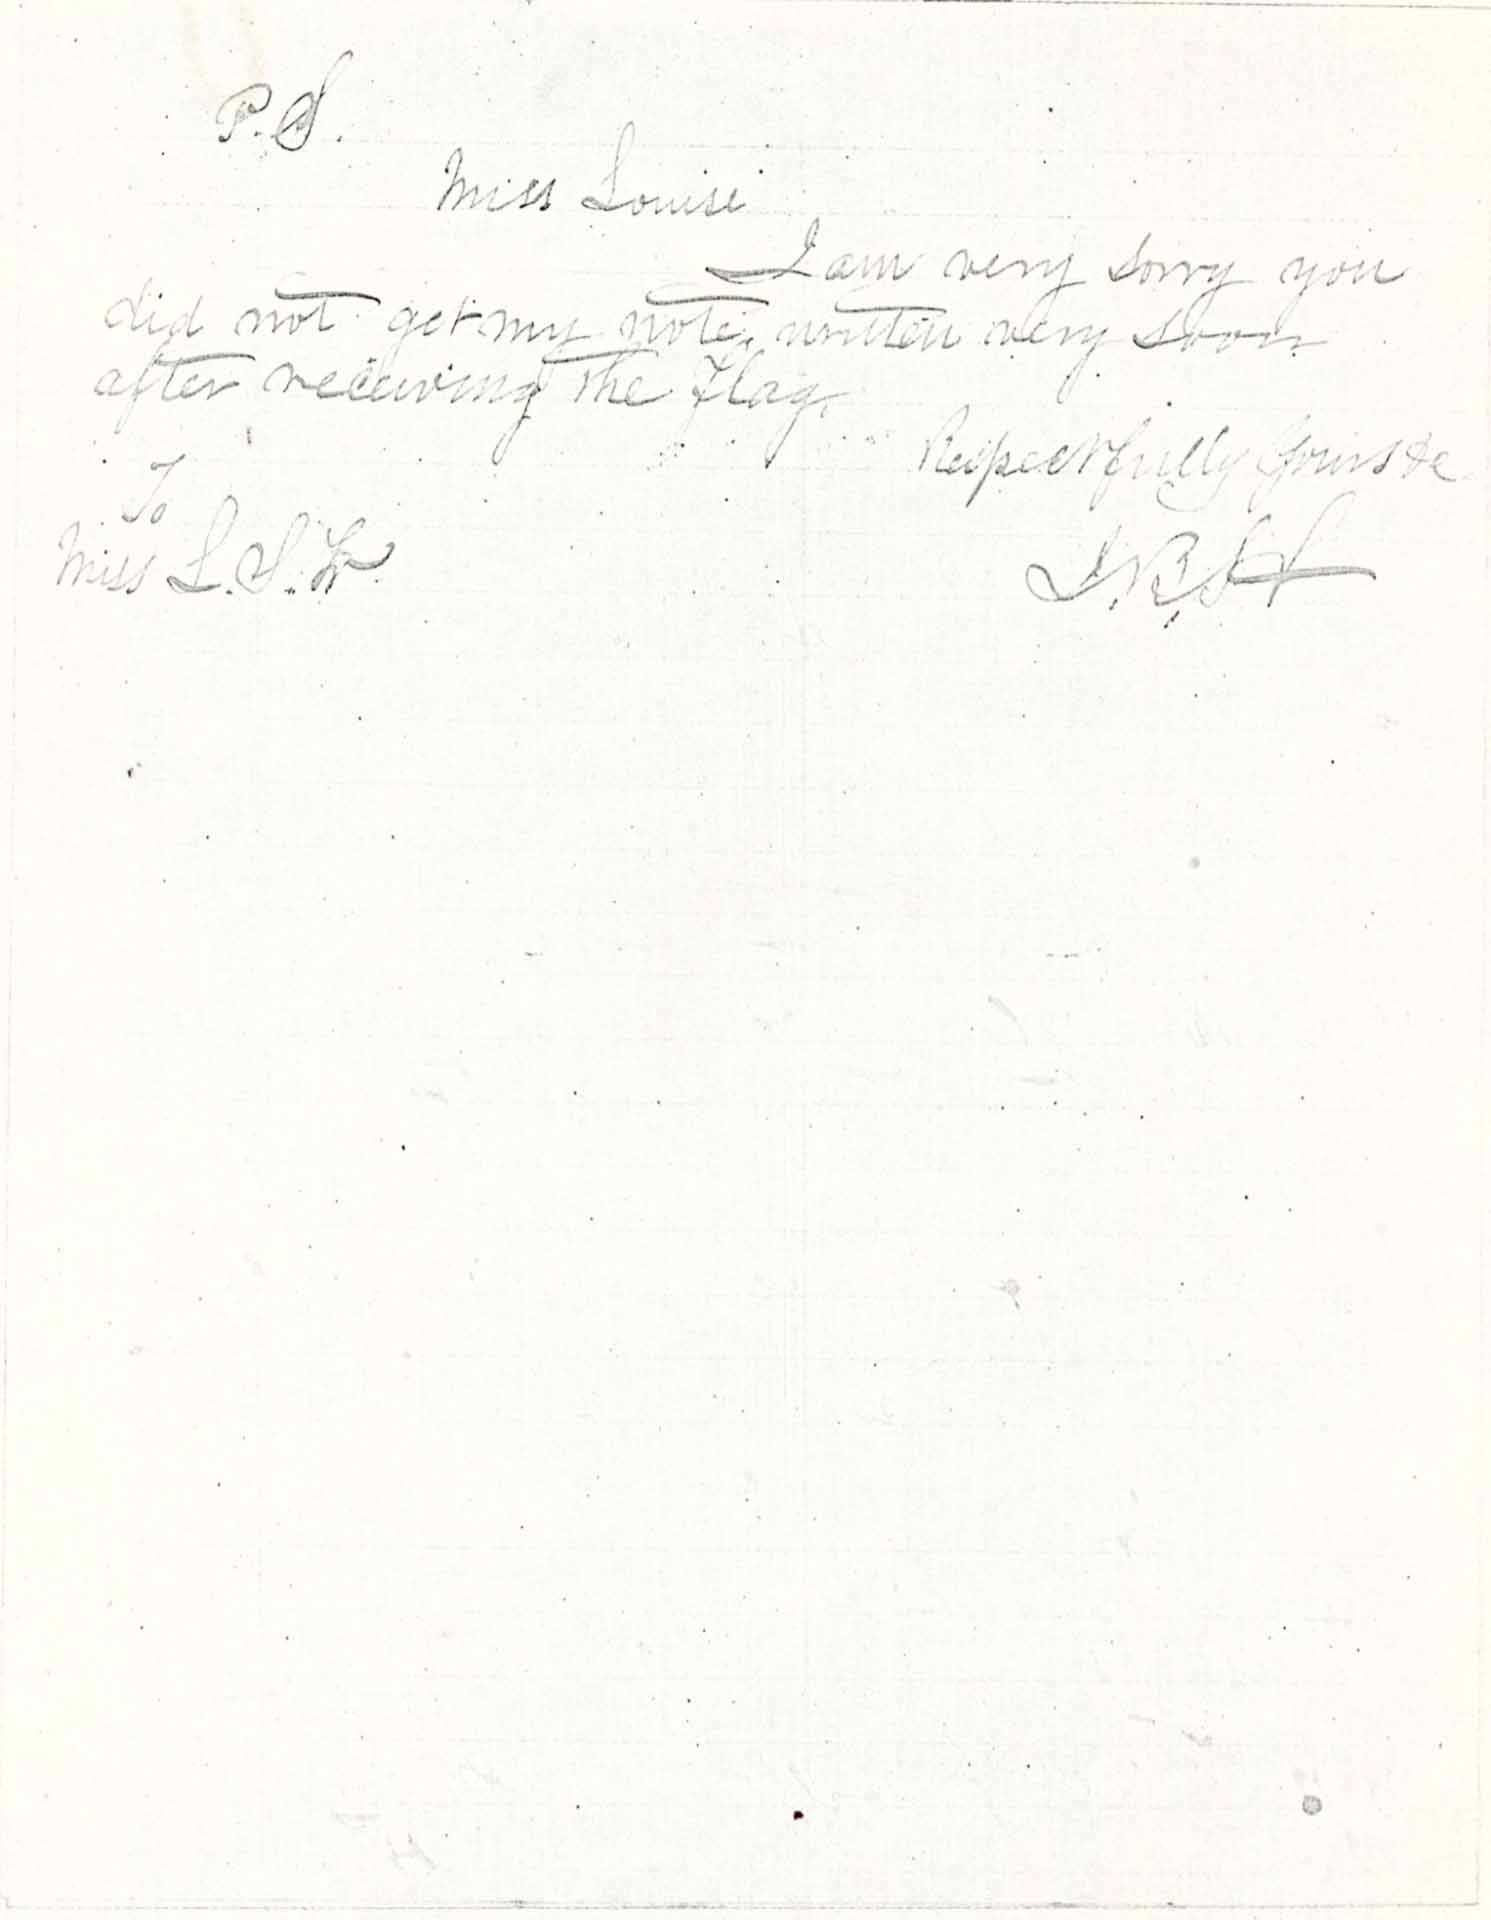 P.S.
Miss Louise
I am very sorry you
did not get my note, written very soon
after receiving the Flag.
Respectfully Yours &c
To
Miss L. S.
J. B. S.